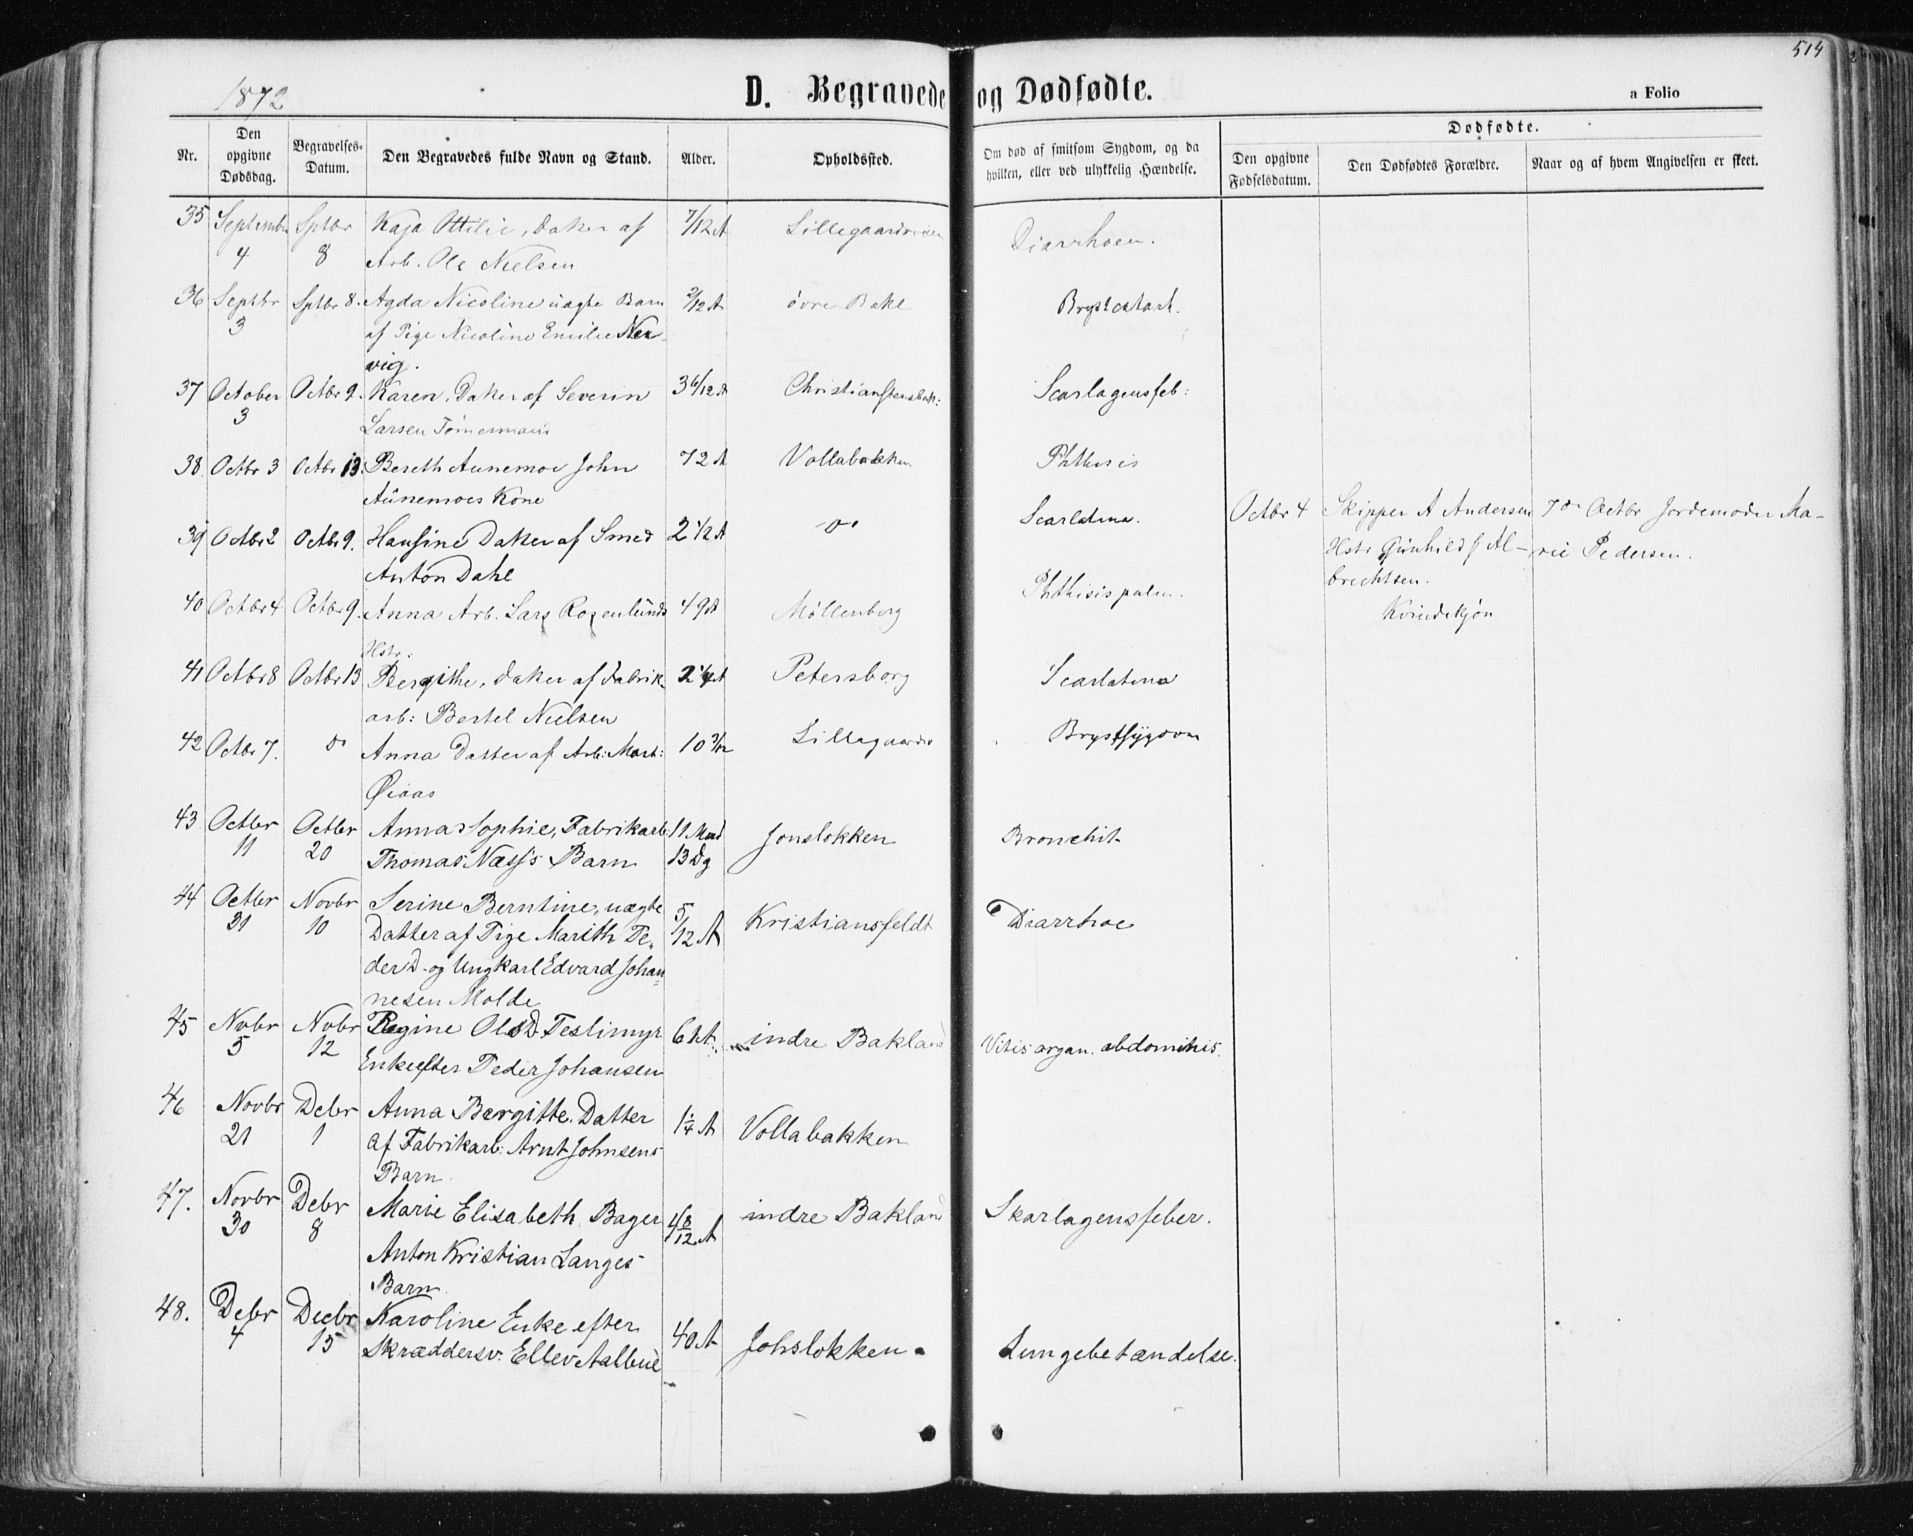 514
1872
D. Begravede og Dødfødte.
a Folio
Nr.
Den opgivne Dødsdag.
Begravelses-Datum.
Den Begravedes fulde Navn og Stand.
Alder.
Opholdssted.
Om død af smitsom Sygdom, og da hvilken, eller ved ulykkelig Hændelse.
Dødfødte.
Den opgivne Fødselsdatum.
Den Dødfødtes Forældre.
Naar og af hvem Angivelsen er skeet.
35 Septembr Sptbr Kaja Ottilie, Datter af 7/12 A Lillegaards Diarrhoen.
4 8 Arb. Ole Nielsen
36 Septbr Sptbr 8. Agda Nicoline uægte Barn 2/12 A øvre Bakl Brystcatarh.
3 af Pige Nicoline Emilie Ner-
vig.
37 October Octbr 9. Karen, Datter af Severin 3 6/12 A Christianstensbak: Scarlagensfeb:
3 Larsen Tømermand
38. Octbr 3 Octbr 13. Bereth Aunemoe John 72 A Vollabakken Phthisis
Aunemoes Kone
39 Octbr 2 Octbr 9. Hansine Datter af Smed 2 1/2 A do Scarlatina. Octbr 4 Skipper A Andersen 7de Octbr Jordemoder Ma-
Anton Dahl Hstr Gunhild f Al- rie Pedersen.
brechtsen.
Kvindekjøn
40 Octbr 4 Octbr 9. Anna Arb. Lars Rosenlunds 49 A Møllenberg Phthisis pulm.
Hstr.
41 Octbr 8 Octbr 13 Bergithe, Datter af Fabrik 2 1/4 A Petersborg Scarlatina
arb: Bertel Nielsen
42 Octbr 7. do Anna Datter af Arb: Mort: 10 3/12 Lillegaards Brystsygdom
Øiaas
43 Octbr Octbr Anna Sophie, Fabrikarb: 11 Mnd Jonsløkken Bronchit
11 20 Thomas Næss's Barn 13 Dg
44 Octbr Novbr Serine Berntine, uægte 5/12 A Kristiansfeldt Diarrhoe
21 10 Datter af Pige Marith Pe-
derD. og Ungkarl Edvard Johan-
nesen Molde
45 Novbr Novbr Regine OlsD. Teslimyr 61 A indre Bakland Vitis organ. abdominis.
5 12 Enke efter Peder Johansen
46 Novbr Debr Anna Bergitte Datter 1 1/4 A Vollabakken
21 1 af Fabrikarb: Arnt Johnsens
Barn
47. Novbr Debr Marie Elisabeth Bager 4 8/12 A indre Bakland Skarlagensfeber.
30 8 Anton Kristian Langes
Barn
48. Debr Decbr Karoline Enke efter 40 A Johsløkken Lungebetændelse.
4 15 Skræddersv. Ellev Aalbue